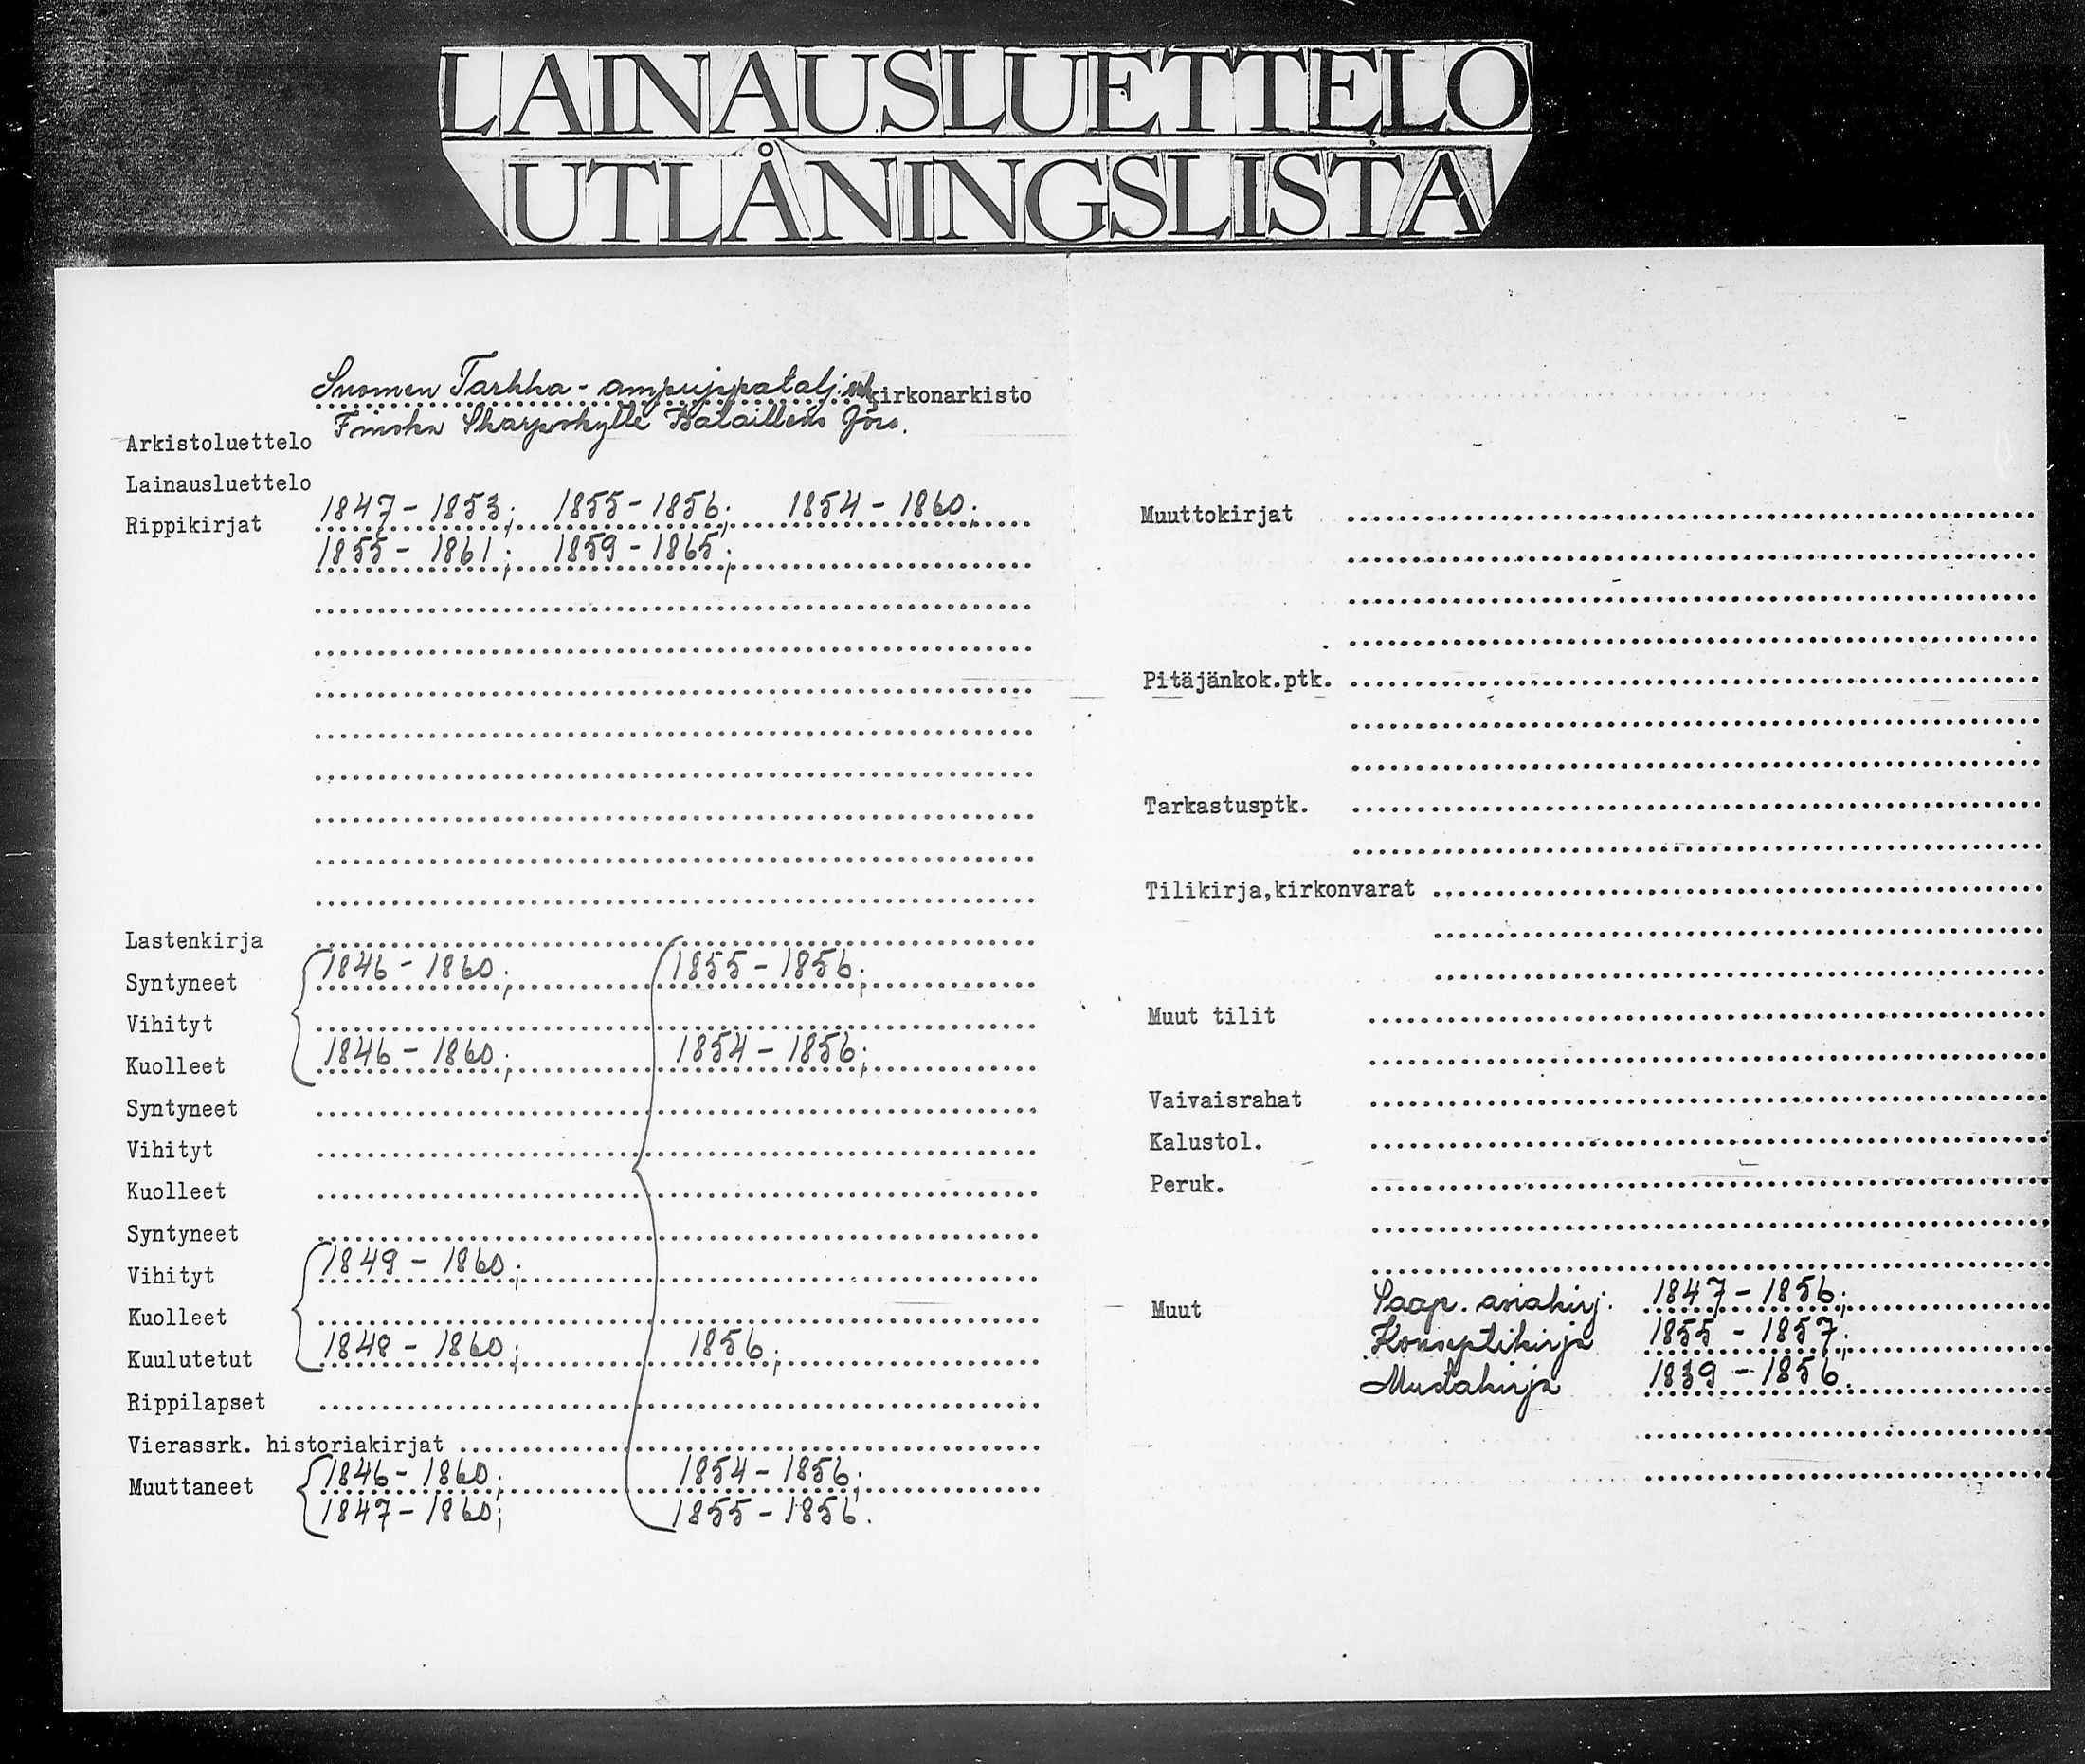 LAINAUSLUETTELO
UTLÅNINGSLISTA
Suomen Tarkka-ampujapatalj. srk kirkonarkisto
Finska Skarpskytte Bataillens Förs.
Arkistoluettelo
Lainausluettelo
Rippikirjat 1847-1853; 1855-1856; 1854-1860;
1855-1861; 1859-1865;
Lastenkirja
Syntyneet 1846-1860; 1855-1856;
Vihityt
Kuolleet 1846-1860; 1854-1856;
Syntyneet
Vihityt
Kuolleet
Syntyneet
Vihityt 1849-1860;
Kuolleet
Kuulutetut 1848-1860; 1856;
Rippilapset
Vierassrk. historiakirjat
Muuttaneet 1846-1860; 1854-1856;
1847-1860; 1855-1856.
Muuttokirjat
Pitäjänkok.ptk.
Tarkastusptk.
Tilikirja,kirkonvarat
Muut tilit
Vaivaisrahat
Kalustol.
Peruk.
Muut Saap. asiakirj. 1847-1856;
Konseptikirja 1855-1857;
Mustakirja 1839-1856.